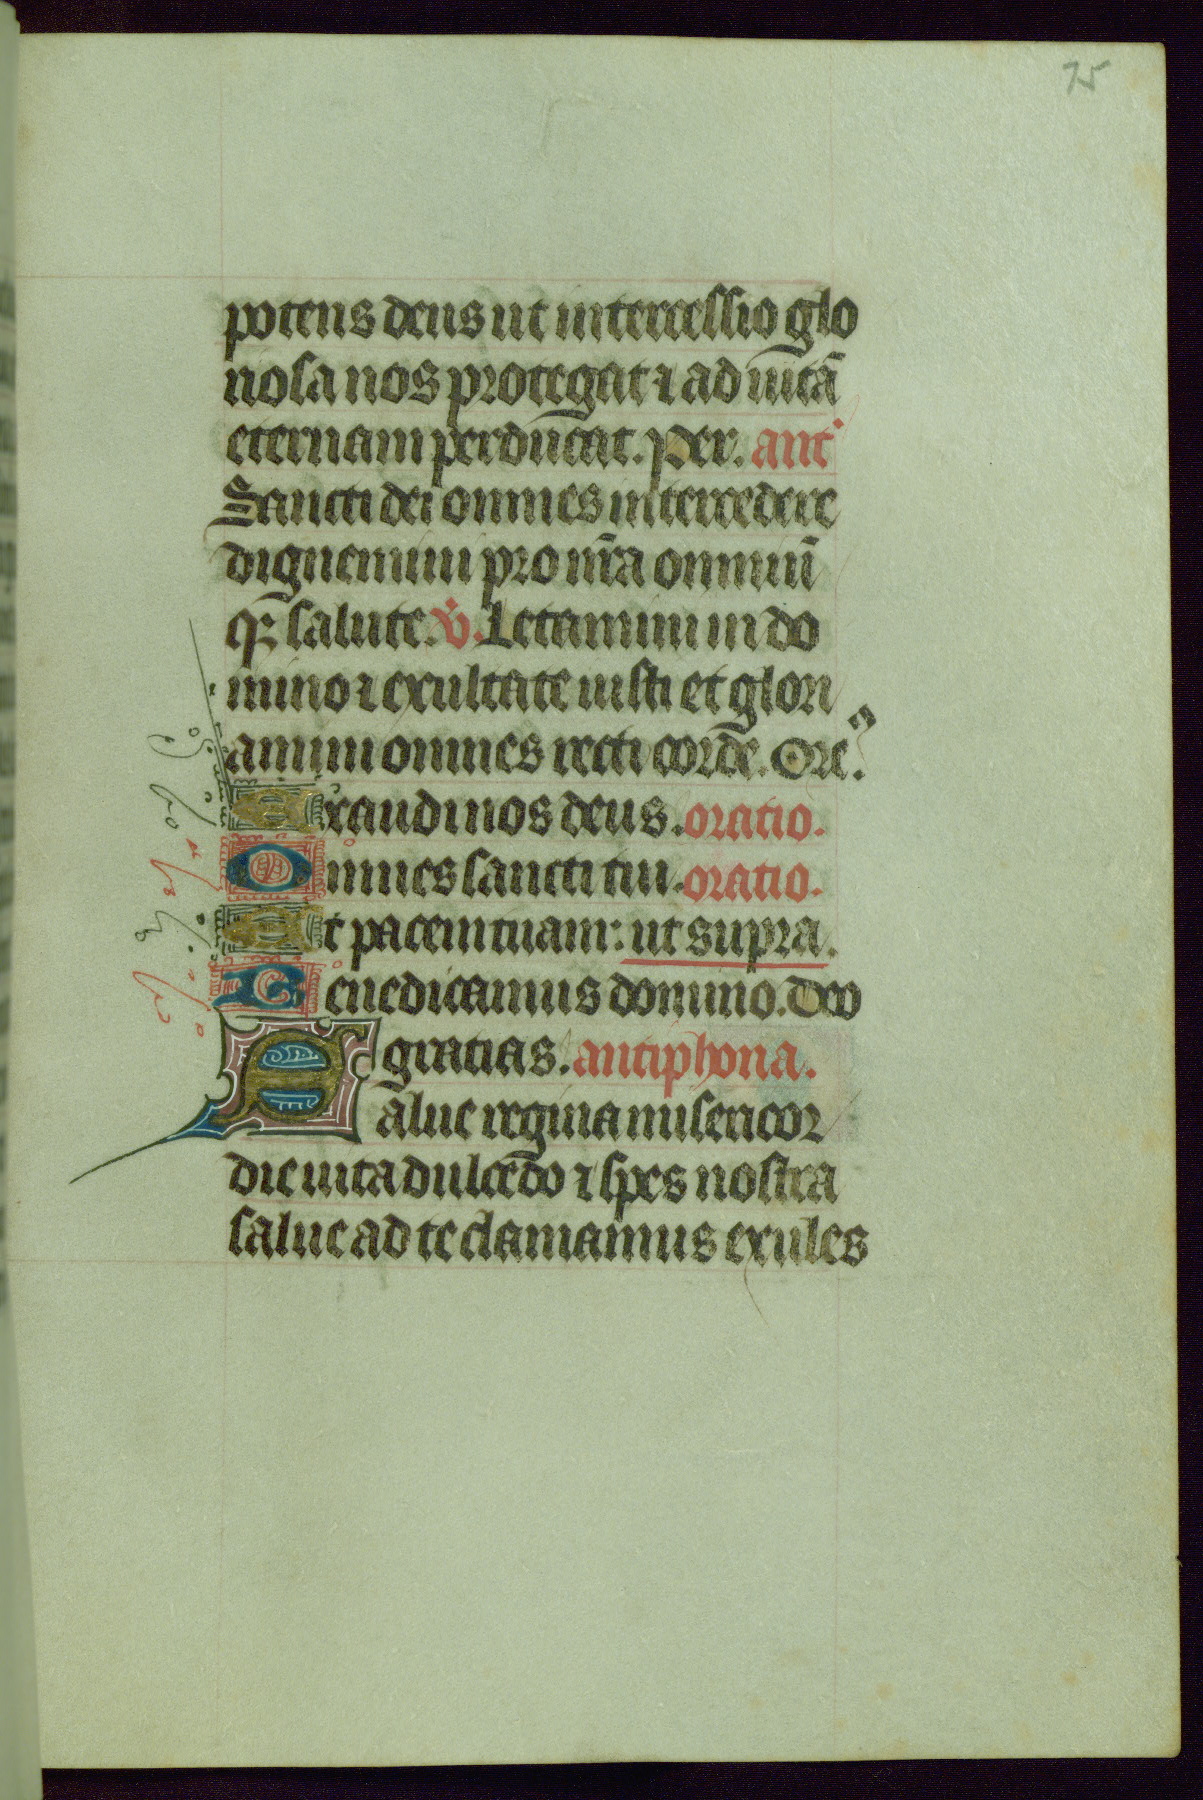 75
potens deus ut intercessio glo
riosa nos protegat ⁊ ad uitā
eternam perducat. Per. ant̾
Sancti dei omnes intercedere
dignemini pro nr̄a omniū
qꝫ salute. v̾. Letamini in do
mino ⁊ exultate iusti et glori
amini omnes recti corde. Ore?
Exaudi nos deus. oratio.
Omnes sancti tui. oratio.
Et pacem tuam: ut supra.
Benedicamus domino. Deo
gratias. antiphona.
Salue regina misericor
die uita dulcedo ⁊ spes nostra
salue ad te clamamus exules